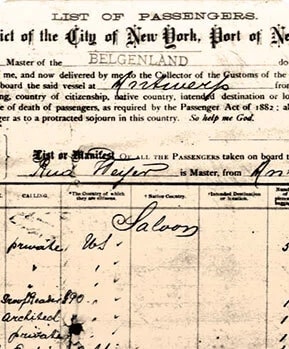 LIST OF PASSENGERS.
ict of the City of New York, Port of Ne
Master of the BELGENLAND do
me, and now delivered by me to the Collector of the Customs of the
board the said vessel at Antwerp
ng, country of citizenship, native country, intended destination or lo
e of death of passengers, as required by the Passenger Act of 1882; al
ger as to a protracted sojourn in this country. So help me God.
List or Manifest OF ALL THE PASSENGERS taken on board t
is Master, from An
CALLING. *The Country of which they are citizens. Native Country. Intended Destination or Location.
Saloon
private US
architect
private